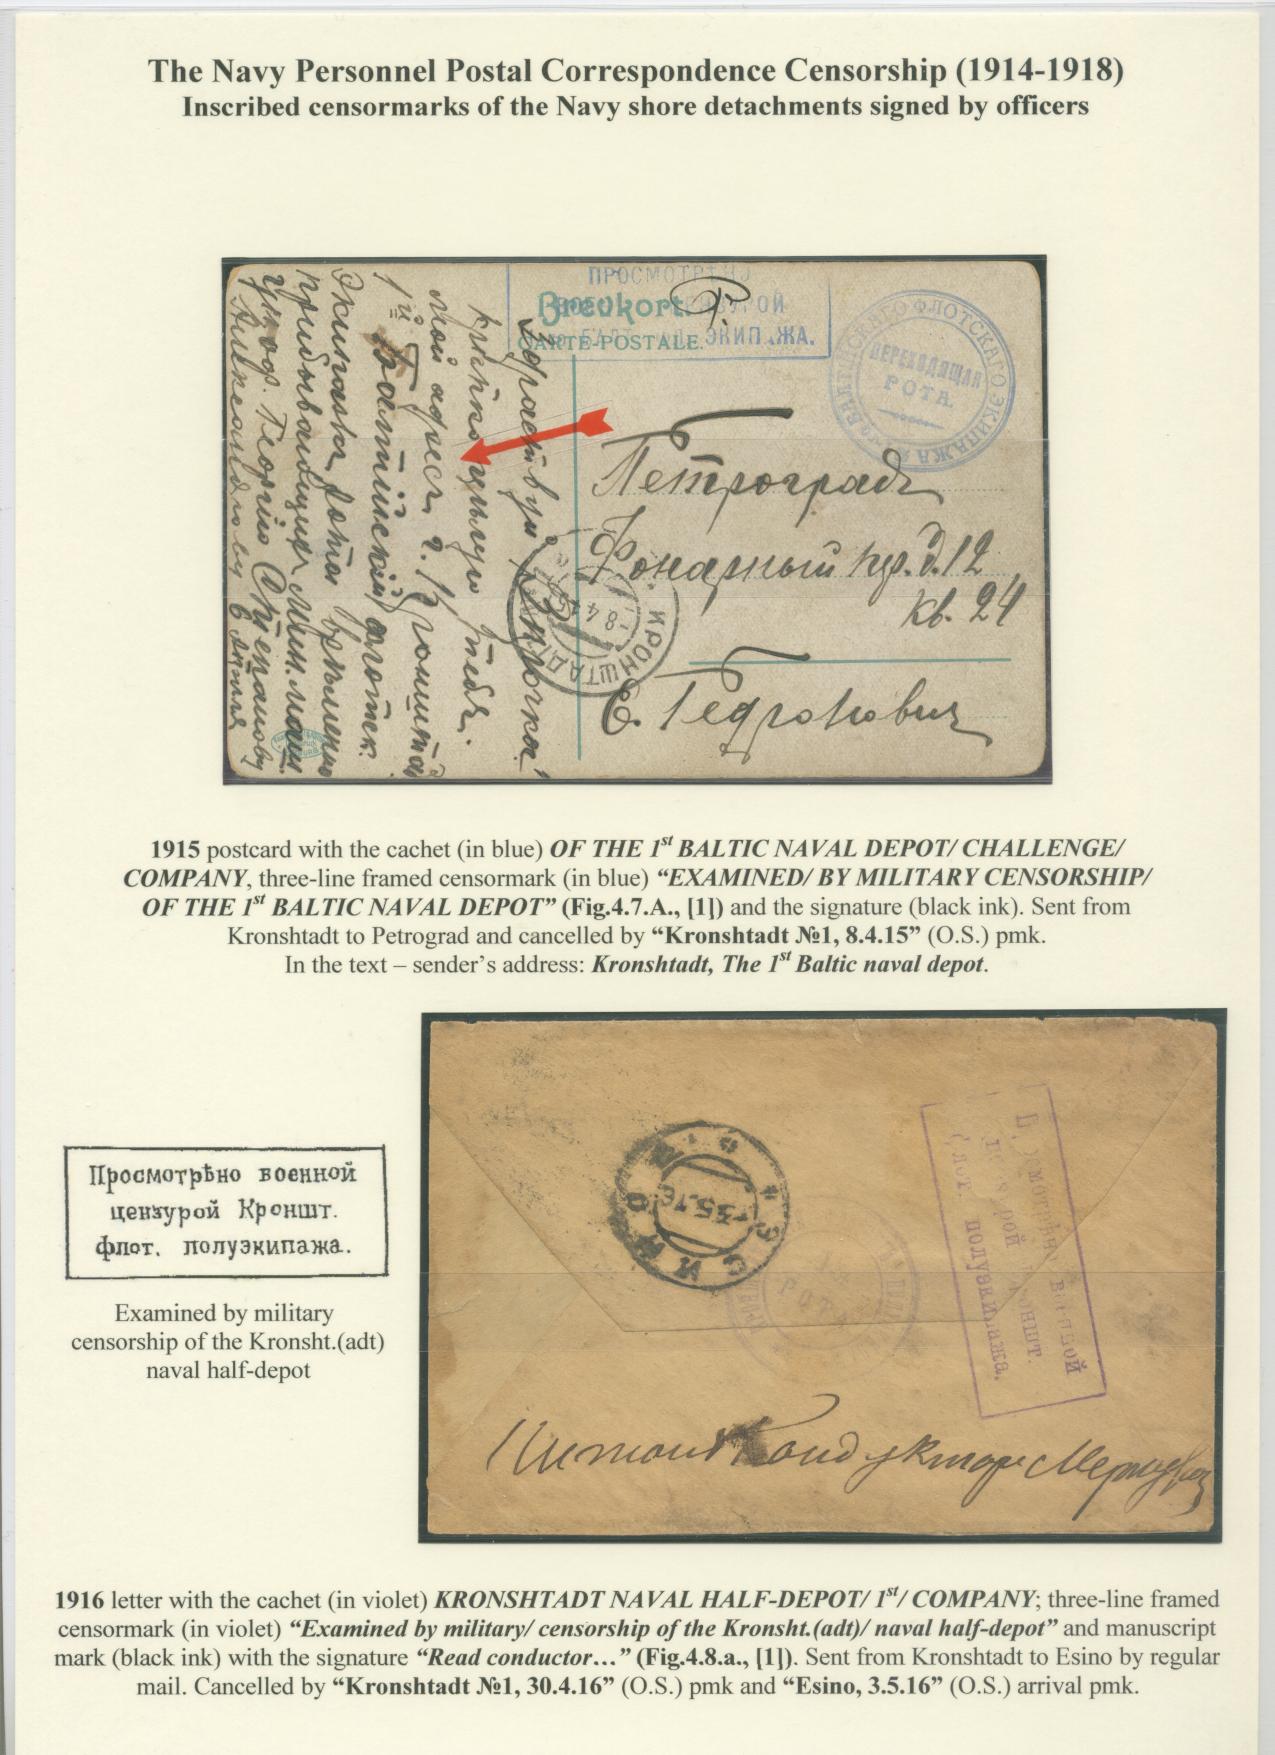 The Navy Personnel Postal Correspondence Censorship (1914-1918)
Inscribed censormarks of the Navy shore detachments signed by officers
ПРОСМОТРѢНО
ЦЕНЗУРОЙ
БАЛТ. ЭКИПАЖА.
Brevkort
CARTE-POSTALE.
БАЛТІЙСКАГО ФЛОТСКАГО ЭКИПАЖА
ПЕРЕХОДЯЩАЯ
РОТА.
Петроградъ
Фонарный пр. д. 12
кв. 24
Е. Гедроновичъ
Здравствуй
Крѣпко цѣлую тебя.
Мой адресъ г. Кронштадтъ
1й Балтійскій флотск.
Экипажъ рота временно
прибывающихъ
Георгію Степанову
КРОНШТАДТ
8 4 15
1915 postcard with the cachet (in blue) OF THE 1st BALTIC NAVAL DEPOT/ CHALLENGE/
COMPANY, three-line framed censormark (in blue) “EXAMINED/ BY MILITARY CENSORSHIP/
OF THE 1st BALTIC NAVAL DEPOT” (Fig.4.7.A., [1]) and the signature (black ink). Sent from
Kronshtadt to Petrograd and cancelled by “Kronshtadt №1, 8.4.15” (O.S.) pmk.
In the text – sender’s address: Kronshtadt, The 1st Baltic naval depot.
Просмотрѣно военной
цензурой Кроншт.
флот. полуэкипажа.
Examined by military
censorship of the Kronsht.(adt)
naval half-depot
ЭСИНО
3.5.16
РОТА
Просмотрѣно военной
цензурой Кроншт.
флот. полуэкипажа.
Читалъ Кондукторъ
1916 letter with the cachet (in violet) KRONSHTADT NAVAL HALF-DEPOT/ 1st/ COMPANY; three-line framed
censormark (in violet) “Examined by military/ censorship of the Kronsht.(adt)/ naval half-depot” and manuscript
mark (black ink) with the signature “Read conductor…” (Fig.4.8.a., [1]). Sent from Kronshtadt to Esino by regular
mail. Cancelled by “Kronshtadt №1, 30.4.16” (O.S.) pmk and “Esino, 3.5.16” (O.S.) arrival pmk.